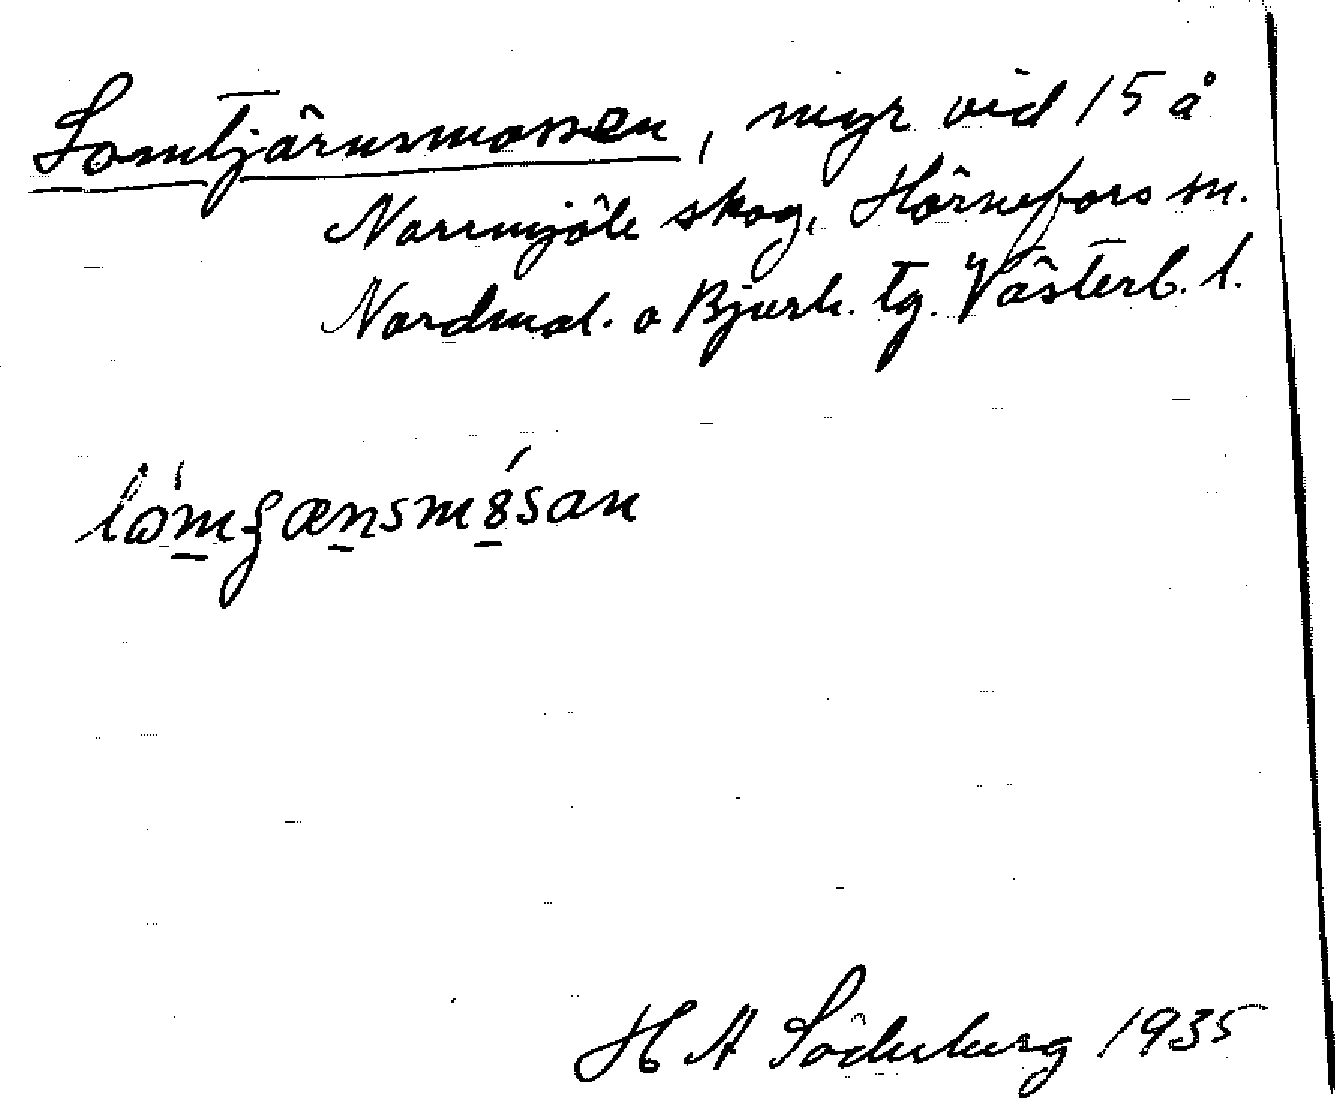 Lomtjärnsmossen, myr vid 15 å
Norrmjöle skog, Hörnefors sn.
Nordmal. o Bjurh. tg. Västerb. l.
H A Söderberg 1935